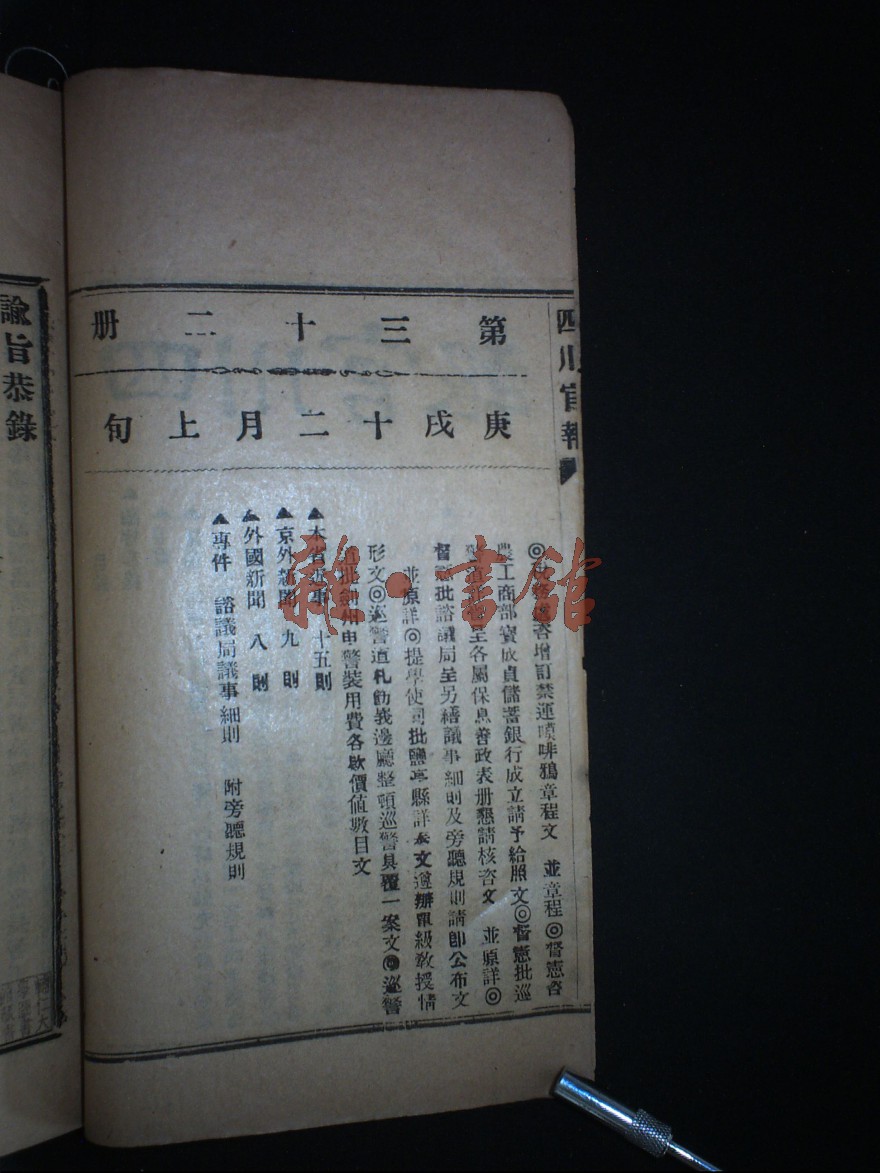 四川官報
第三十二册
庚戌十二月上旬
增訂禁運嗎啡鴉章程文 並章程◎督憲咨
農工商部寶成貞儲蓄銀行成立請予給照文◎督憲批巡
警道 呈各屬保息善政表册懇請核咨文 並原詳◎
督憲批諮議局呈另繕議事細則及旁聽規則請即公布文
並原詳◎提學使司批鹽亭縣詳奉文遵辦單級敎授情
形文◎巡警道札飭義邊廳整頓巡警具覆一案文◎巡警
道批劍州申警裝用費各欵價値數目文
▲本省近事 十五則
▲京外新聞 九則
▲外國新聞 八則
▲專件 諮議局議事細則 附旁聽規則
諭旨恭錄
雜·書館